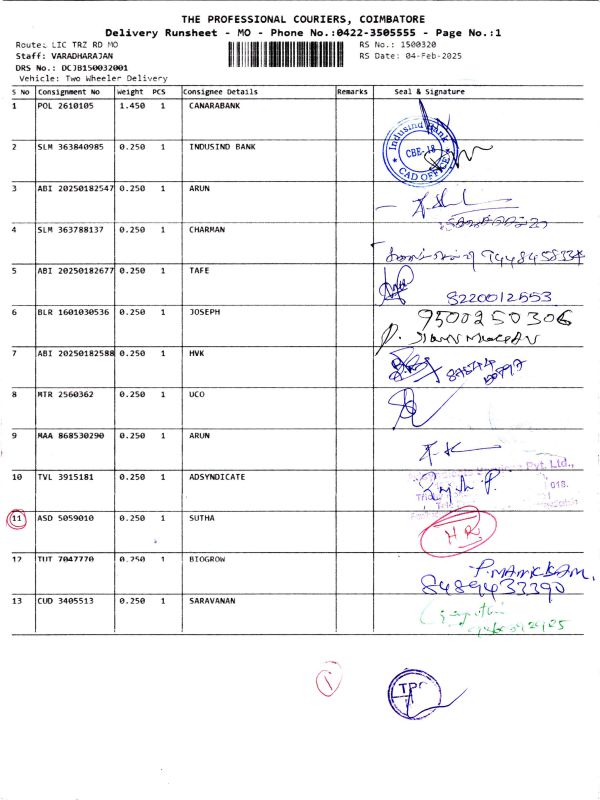 THE PROFESSIONAL COURIERS, COIMBATORE
Delivery Runsheet - MO - Phone No.:0422-3505555 - Page No.:1
Route: LIC TRZ RD MO
RS No.: 1500320
Staff: VARADHARAJAN
RS Date: 04-Feb-2025
DRS No.: DCJB150032001
Vehicle: Two Wheeler Delivery
S No Consignment No Weight PCS Consignee Details Remarks Seal & Signature
1 POL 2610105 1.450 1 CANARABANK
2 SLM 363840985 0.250 1 INDUSIND BANK
Indusind Bank
CBE-18
CAD OFFICE
3 ABI 20250182547 0.250 1 ARUN
4 SLM 363788137 0.250 1 CHARMAN
5 ABI 20250182677 0.250 1 TAFE
8220012553
6 BLR 1601030536 0.250 1 JOSEPH
9500250306
7 ABI 20250182588 0.250 1 HVK
8 MTR 2560362 0.250 1 UCO
9 MAA 868530290 0.250 1 ARUN
10 TVL 3915181 0.250 1 ADSYNDICATE
Pvt. Ltd.,
11 ASD 5059010 0.250 1 SUTHA
HR
12 TUT 7047770 0.250 1 BIOGROW
P. MANICKAM.
8489433390
13 CUD 3405513 0.250 1 SARAVANAN
1
TPC